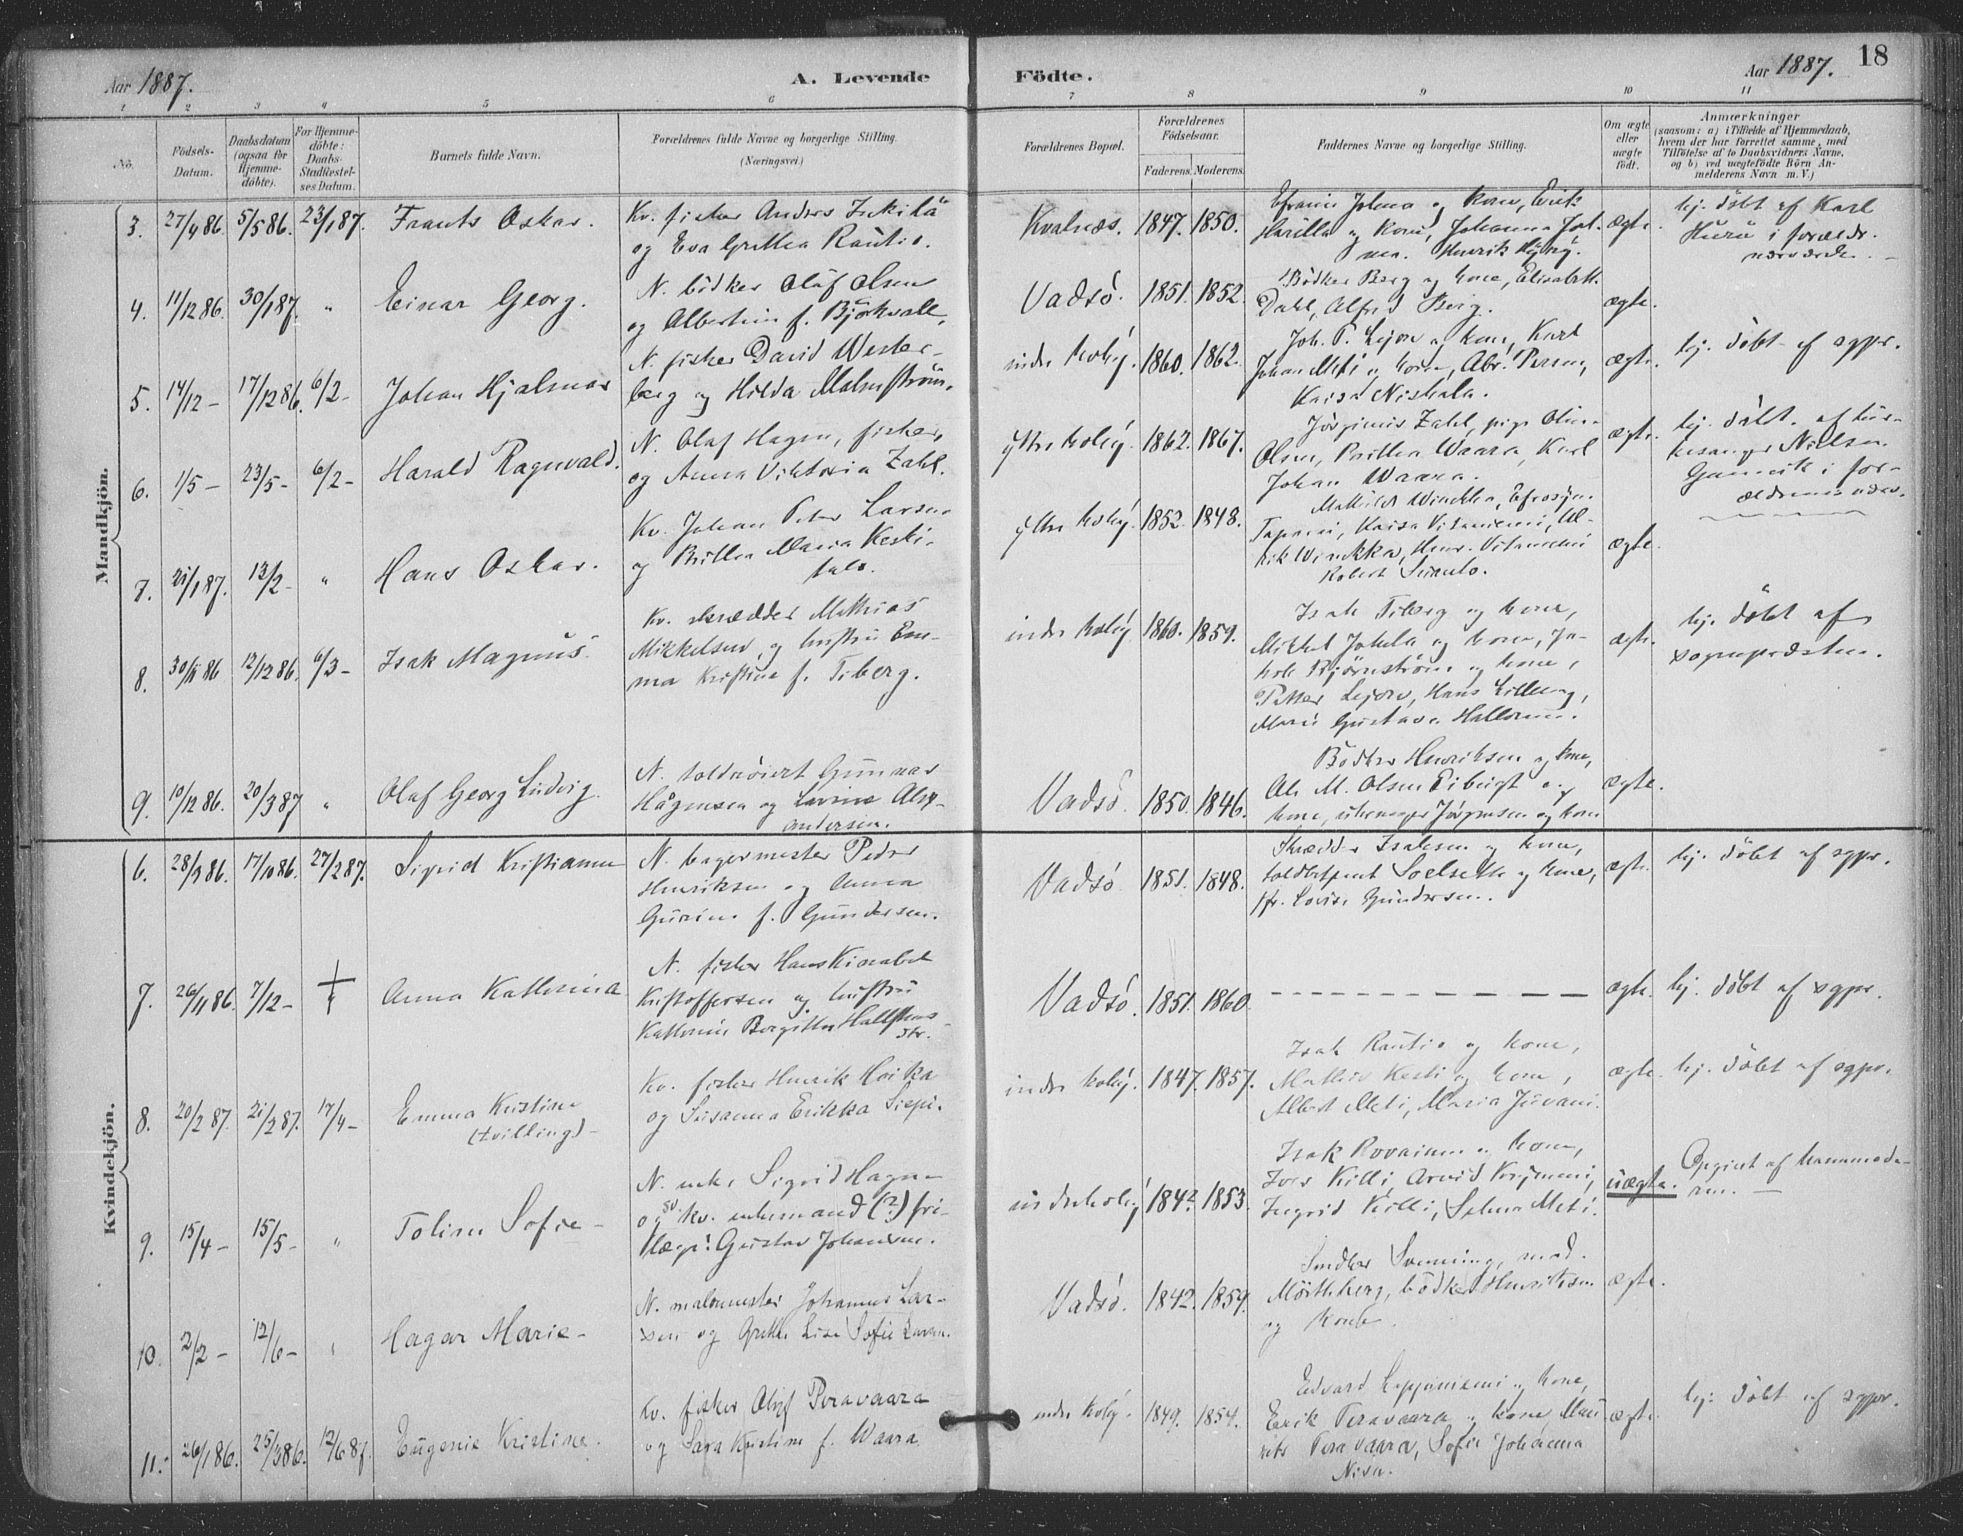 Aar 1887.
A. Levende Födte.
Aar 1887.
18
1 2 3 4 5 6 7 8 9 10 11
No.
Födsels-Datum.
Daabsdatum (ogsaa for Hjemme-döbte).
For Hjemme-döbte: Daabs-Stadfæstel-ses Datum.
Barnets fulde Navn.
Forældrenes fulde Navne og borgerlige Stilling.
(Næringsvei.)
Forældrenes Bopæl.
Forældrenes Födselsaar.
Faderens. Moderens.
Faddernes Navne og borgerlige Stilling.
Om ægte eller uægte födt.
Anmærkninger
(saasom: a) i Tilfælde af Hjemmedaab,
hvem der har forrettet samme, med
Tilföielse af to Daabsvidners Navne,
og b) ved uægtefödte Börn An-
melderens Navn m. V.)
Mandkjön.
3. 27/4 86. 5/5 86. 23/1 87. Frants Oskar.
Kv. fisker Anders
og Eva Gretha Rautio.
Kvalnæs. 1847. 1850.
Efraim Johna og kone, Erik
og kone, Johanna
Henrik
ægte.
hj. döbt af Karl
Huru i forældr.
nærværelse.
4. 11/12 86. 30/1 87. " Einar Georg.
N. bödker Oluf Olsen
og Albertine f. Björkvall.
Vadsö. 1851. 1852.
Bödker Berg og kone, Elisabeth
Dahl, Alfred Berg.
ægte.
5. 14/12 – 17/12 86. 6/2 – Johan Hjalmar
N. fisker David Wester-
berg og Hilda Malmström.
indre kolig. 1860. 1862.
Joh. P. Lejon og kone, Karl
Johan Meti og kone, Abr. Persen,
Kaisa Niskala.
ægte.
hj. döbt af sgpr.
6. 1/5 – 23/5 – 6/2 – Harald Ragnvald.
N. Olaf Hagen, fisker,
og Anna Viktoria Zahl.
ytre kolig. 1862. 1867.
Jörginus Zahl, pige
Olsen, Britha Waara, Karl
Johan Waara.
ægte.
hj. döbt af kir-
kesanger Nielsen
i for-
ældrenes
7. 21/1 87. 13/2 – " Hans Oskar.
Kv. Johan Peter Larsen
og Britha Maria Keski-
talo.
ytre kolig. 1852. 1848.
Mathilde Winikka,
Tapani, Kaisa Vitaniemi, Ul-
rik Winikka, Henr. Vitaniemi
Robert
ægte.
8. 30/11 86 12/12 86. 6/3 – Isak Magnus.
Kv. skrædder Mathias
Mikkelsen og hustru Em-
ma Kristine f. Tiberg.
indre kolig 1860. 1859.
Isak Tiberg og kone,
Mikkel Johnla og kone, Ja-
kob Björnström og kone,
Petter Lejon, Hans
Marie Gustava
ægte.
hj. döbt af
sognepræsten.
9. 10/12 86. 20/3 87 " Olaf Georg Ludvig.
N. toldroiert Gunnar
Hågensen og Lovise
Andersen.
Vadsö 1850. 1846.
Bödker Henriksen og kone,
M. Olsen og
kone, Jörgensen og kone
ægte.
Kvindekjön.
6. 28/3 86. 17/10 86. 27/2 87. Sigrid Kristianne
N. bagermester Peder
Henriksen og Anna
Gurine f. Gundersen.
Vadsö 1851. 1848.
Skrædder Isaksen og kone,
toldbetjent Soelseth og kone,
frk. Lovise Gundersen.
ægte.
hj. döbt af sgpr.
7. 26/11 86. 7/12 – † Anna Katherina
N. fisker Hans
Kristoffersen og hustru
Katherine Bergitte
Vadsö. 1851. 1860.
– – – – – – – – – –
ægte.
hj. döbt af sgpr.
8. 20/2 87. 21/2 87. 17/4 – Emma Kristine
(tvilling) –
Kv. fisker Henrik Hoikka
og Susanna Erikka Siepi.
indre kolig. 1847. 1857.
Isak Rautio og kone,
Mathis Keski og kone,
Albert Meti, Maria Juvani.
ægte.
hj. döbt af sgpr.
9. 15/4 – 15/5 – " Toline Sofie –
N. enke Sigrid Hagen
og sv. kv. enkemand (?) fri-
Gustav Johansen.
indre kolig 1842 1853
Isak Rovainen og kone,
Killi, Arvid
Ingrid Killi, Selma Meti.
uægte.
Opgivet af barnemode-
ren. –
10. 2/2 – 12/6 – " Hagar Marie –
N. malermester Johannes Lar-
sen og Grethe Lise Sofie Larsen.
Vadsö. 1842. 1859.
Snedker Svenning, mad.
bödker Henriksen
og kone.
ægte.
11. 26/1 86. 25/3 86. 12/6 87. Eugenie Kristine.
Kv. fisker Olof Peravaara
og Sara Kristine f. Waara
indre kolig. 1849. 1854.
Edvard Leppäniemi og kone,
Erik Peravaara og kone, Mau-
rits Peravaara, Sofie Johanna
Niva.
ægte.
hj. döbt af sgpr.